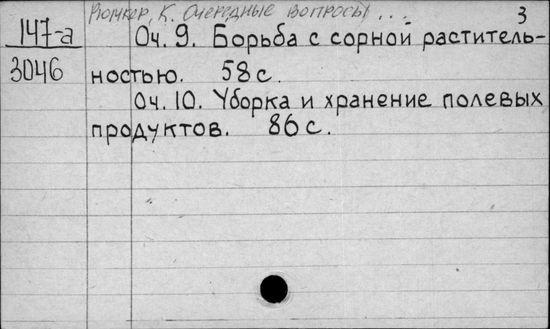 Рюмкер, К. Очередные вопросы ... 3
147-а Оч. 9. Борьба с сорной раститель-
3046 ностью. 58 с.
Оч. 10. Уборка и хранение полевых
продуктов. 86 с.